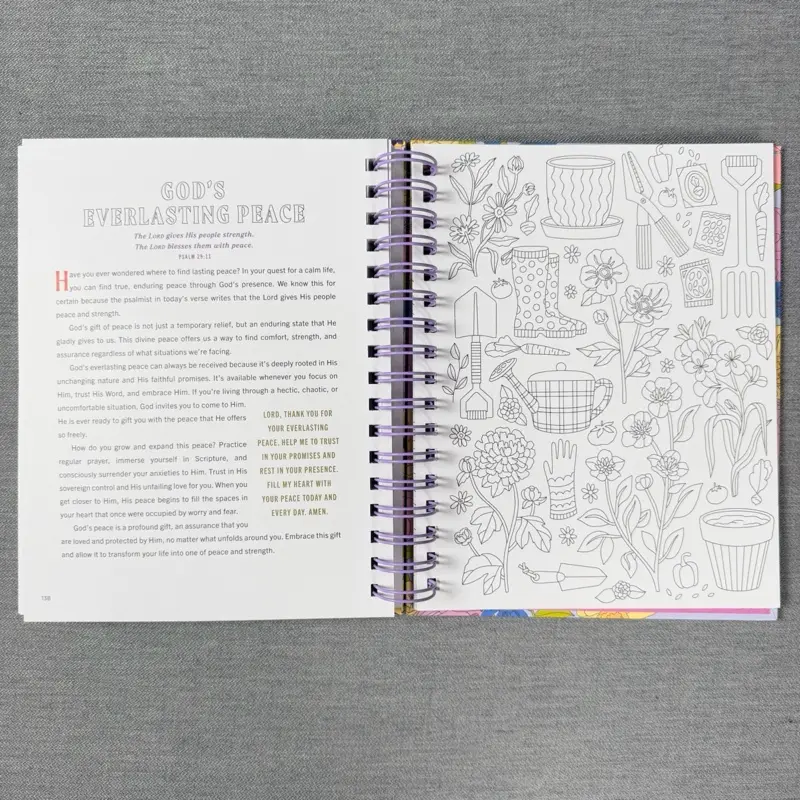 GOD'S
EVERLASTING PEACE
The LORD gives His people strength.
The LORD blesses them with peace.
PSALM 29:11
Have you ever wondered where to find lasting peace? In your quest for a calm life,
you can find true, enduring peace through God's presence. We know this for
certain because the psalmist in today's verse writes that the Lord gives His people
peace and strength.
God's gift of peace is not just a temporary relief, but an enduring state that He
gladly gives to us. This divine peace offers us a way to find comfort, strength, and
assurance regardless of what situations we're facing.
God's everlasting peace can always be received because it's deeply rooted in His
unchanging nature and His faithful promises. It's available whenever you focus on
Him, trust His Word, and embrace Him. If you're living through a hectic, chaotic, or
uncomfortable situation, God invites you to come to Him.
He is ever ready to gift you with the peace that He offers
so freely.
How do you grow and expand this peace? Practice
regular prayer, immerse yourself in Scripture, and
consciously surrender your anxieties to Him. Trust in His
sovereign control and His unfailing love for you. When you
get closer to Him, His peace begins to fill the spaces in
your heart that once were occupied by worry and fear.
God's peace is a profound gift, an assurance that you
are loved and protected by Him, no matter what unfolds around you. Embrace this gift
and allow it to transform your life into one of peace and strength.
LORD, THANK YOU FOR
YOUR EVERLASTING
PEACE. HELP ME TO TRUST
IN YOUR PROMISES AND
REST IN YOUR PRESENCE.
FILL MY HEART WITH
YOUR PEACE TODAY AND
EVERY DAY. AMEN.